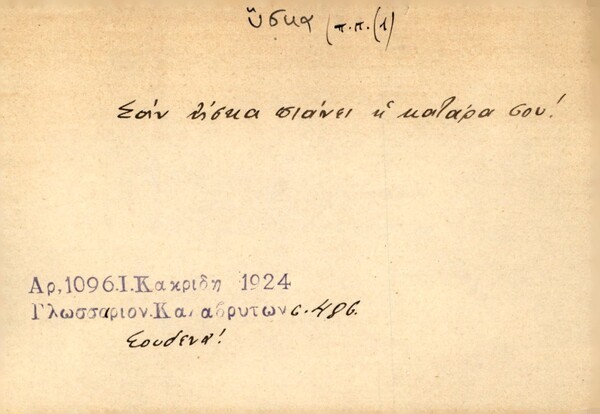 ὕσκα (π.π.(1)
Σὰν ὕσκα πιάνει ἡ κατάρα σου!
Αρ,1096.Ι.Κακριδη 1924
Γλωσσαριον.Καλαβρυτων σ.486.
Σουδενα!